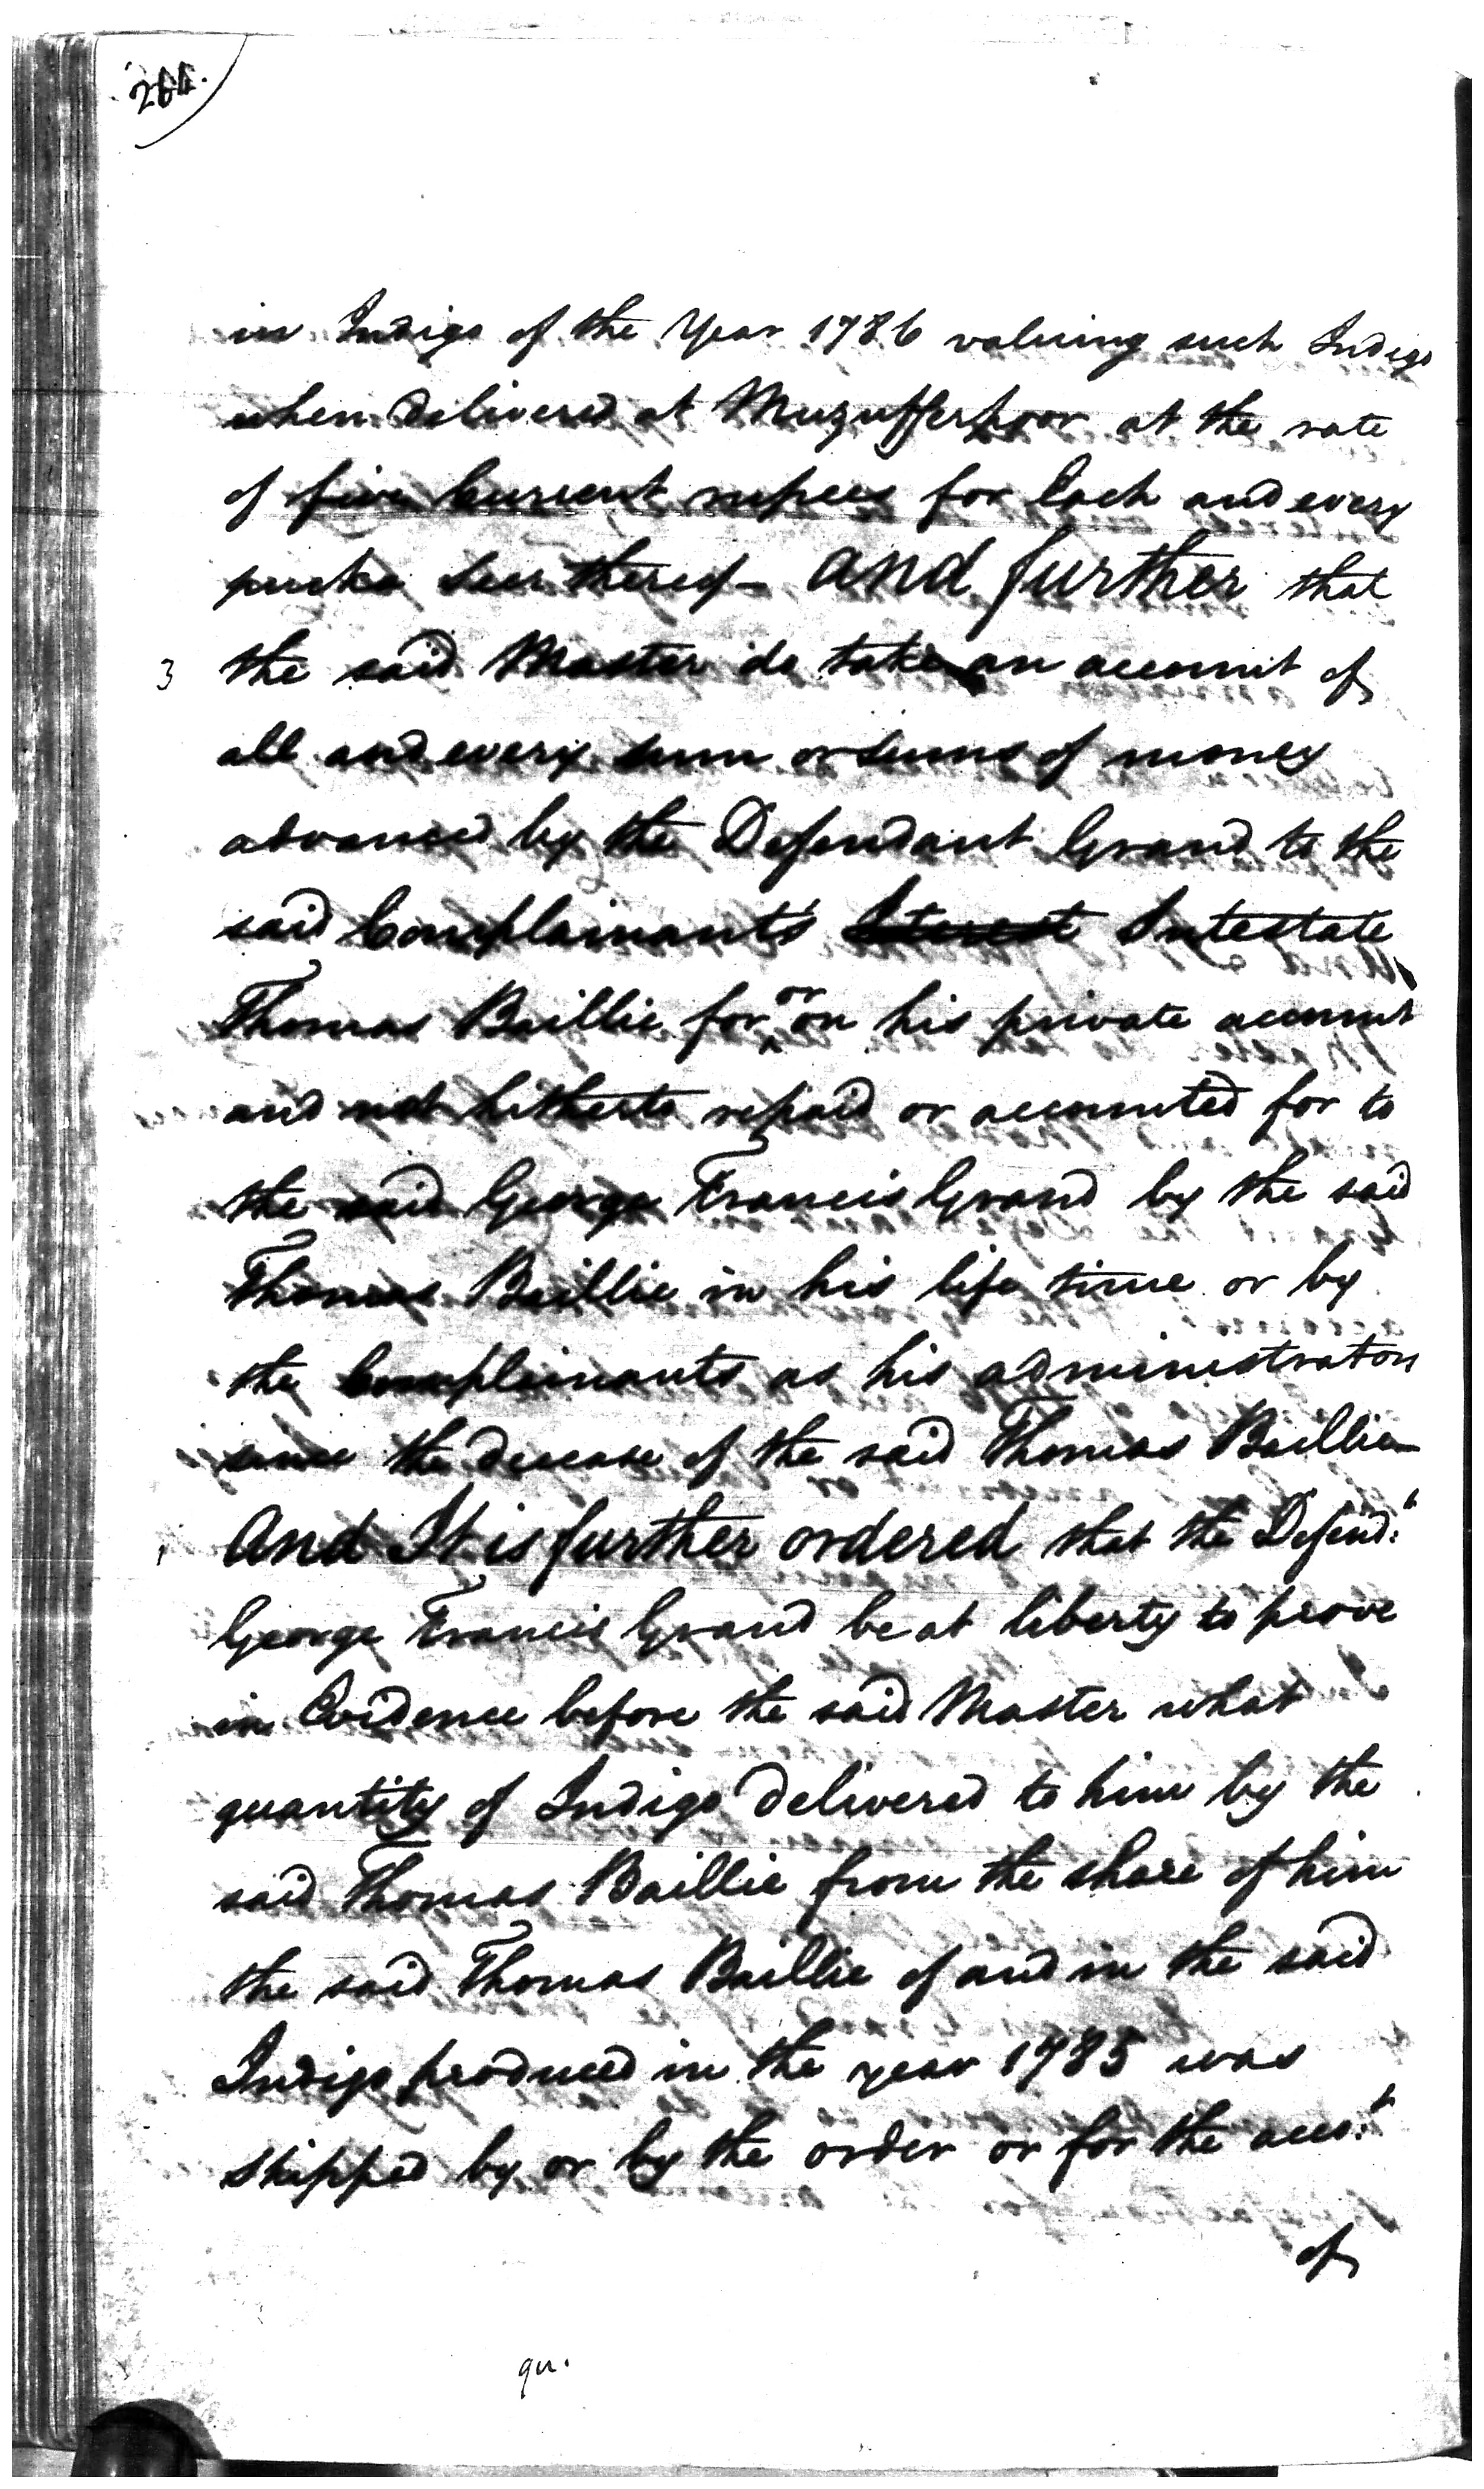 in Indigo of the Year 1786 valuing such Indigo
when delivered at Muzufferpoor at the rate
of five Current rupees for Each and every
pucka Seer thereof - And further that
3 the said Master do take an account of
all and every sum or sums of money
advanced by the Defendant Grand to the
said Complainants Intestate
Thomas Baillie for or on his private account
and not hitherto repaid or accounted for to
the said George Francis Grand by the said
Thomas Baillie in his life time or by
the Complainants as his administrators
since the decease of the said Thomas Baillie -
And It is further ordered that the Defend:t
George Francis Grand be at liberty to prove
in Evidence before the said Master what
quantity of Indigo delivered to him by the
said Thomas Baillie from the share of him
the said Thomas Baillie of and in the said
Indigo produced in the year 1785 was
Shipped by or by the order or for the acco:t
of
qu.